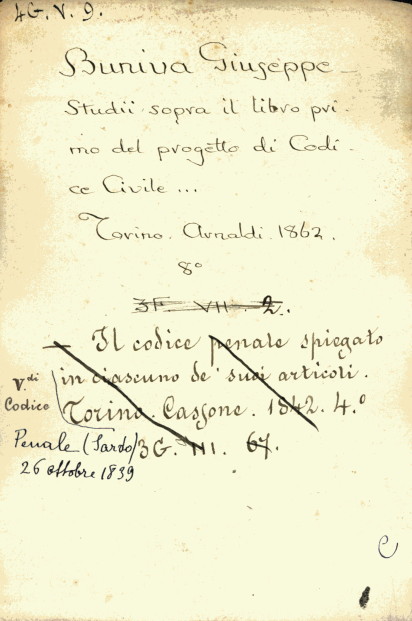 4G. V. 9.
Buniva Giuseppe
Studii sopra il libro pri-
mo del progetto di Codi-
ce Civile ...
Torino. Arnaldi 1862.
8º
3F. VII. 2.
— Il codice penale spiegato
in ciascuno de' suoi articoli.
Torino. Cassone. 1842. 4.º
3G. VI. 67.
V.di
Codice
Penale (Sardo)
26 ottobre 1839